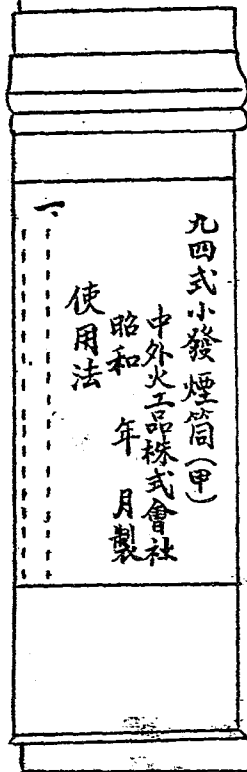 九四式小發煙筒(甲)
中外火工品株式會社
昭和　年　月製
使用法
一、